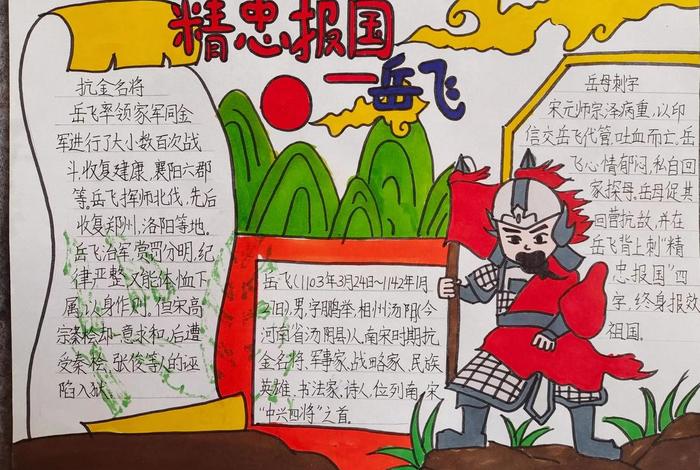 精忠报国
一岳飞
抗金名将
岳飞率领家军同金
军进行了大小数百次战
斗,收复建康,襄阳六郡
等。岳飞挥师北伐,先后
收复郑州,洛阳等地。
岳飞治军,赏罚分明,纪
律严整,又能体恤下
属,以身作则。但宋高
宗秦桧却一意求和,后遭
受秦桧,张俊等人的诬
陷入狱。
岳飞(1103年3月24日~1142年1月
27日),男,字鹏举,相州汤阴(今
河南省汤阴县)人。南宋时期抗
金名将、军事家、战略家、民族
英雄、书法家、诗人,位列南宋
“中兴四将”之首。
岳母刺字
宋元师宗泽病重,以印
信交岳飞代管,吐血而亡,岳
飞心情郁闷,私自回
家探母。岳母促其
回营抗敌,并在
岳飞背上刺“精
忠报国”四
字,终身报效
祖国.